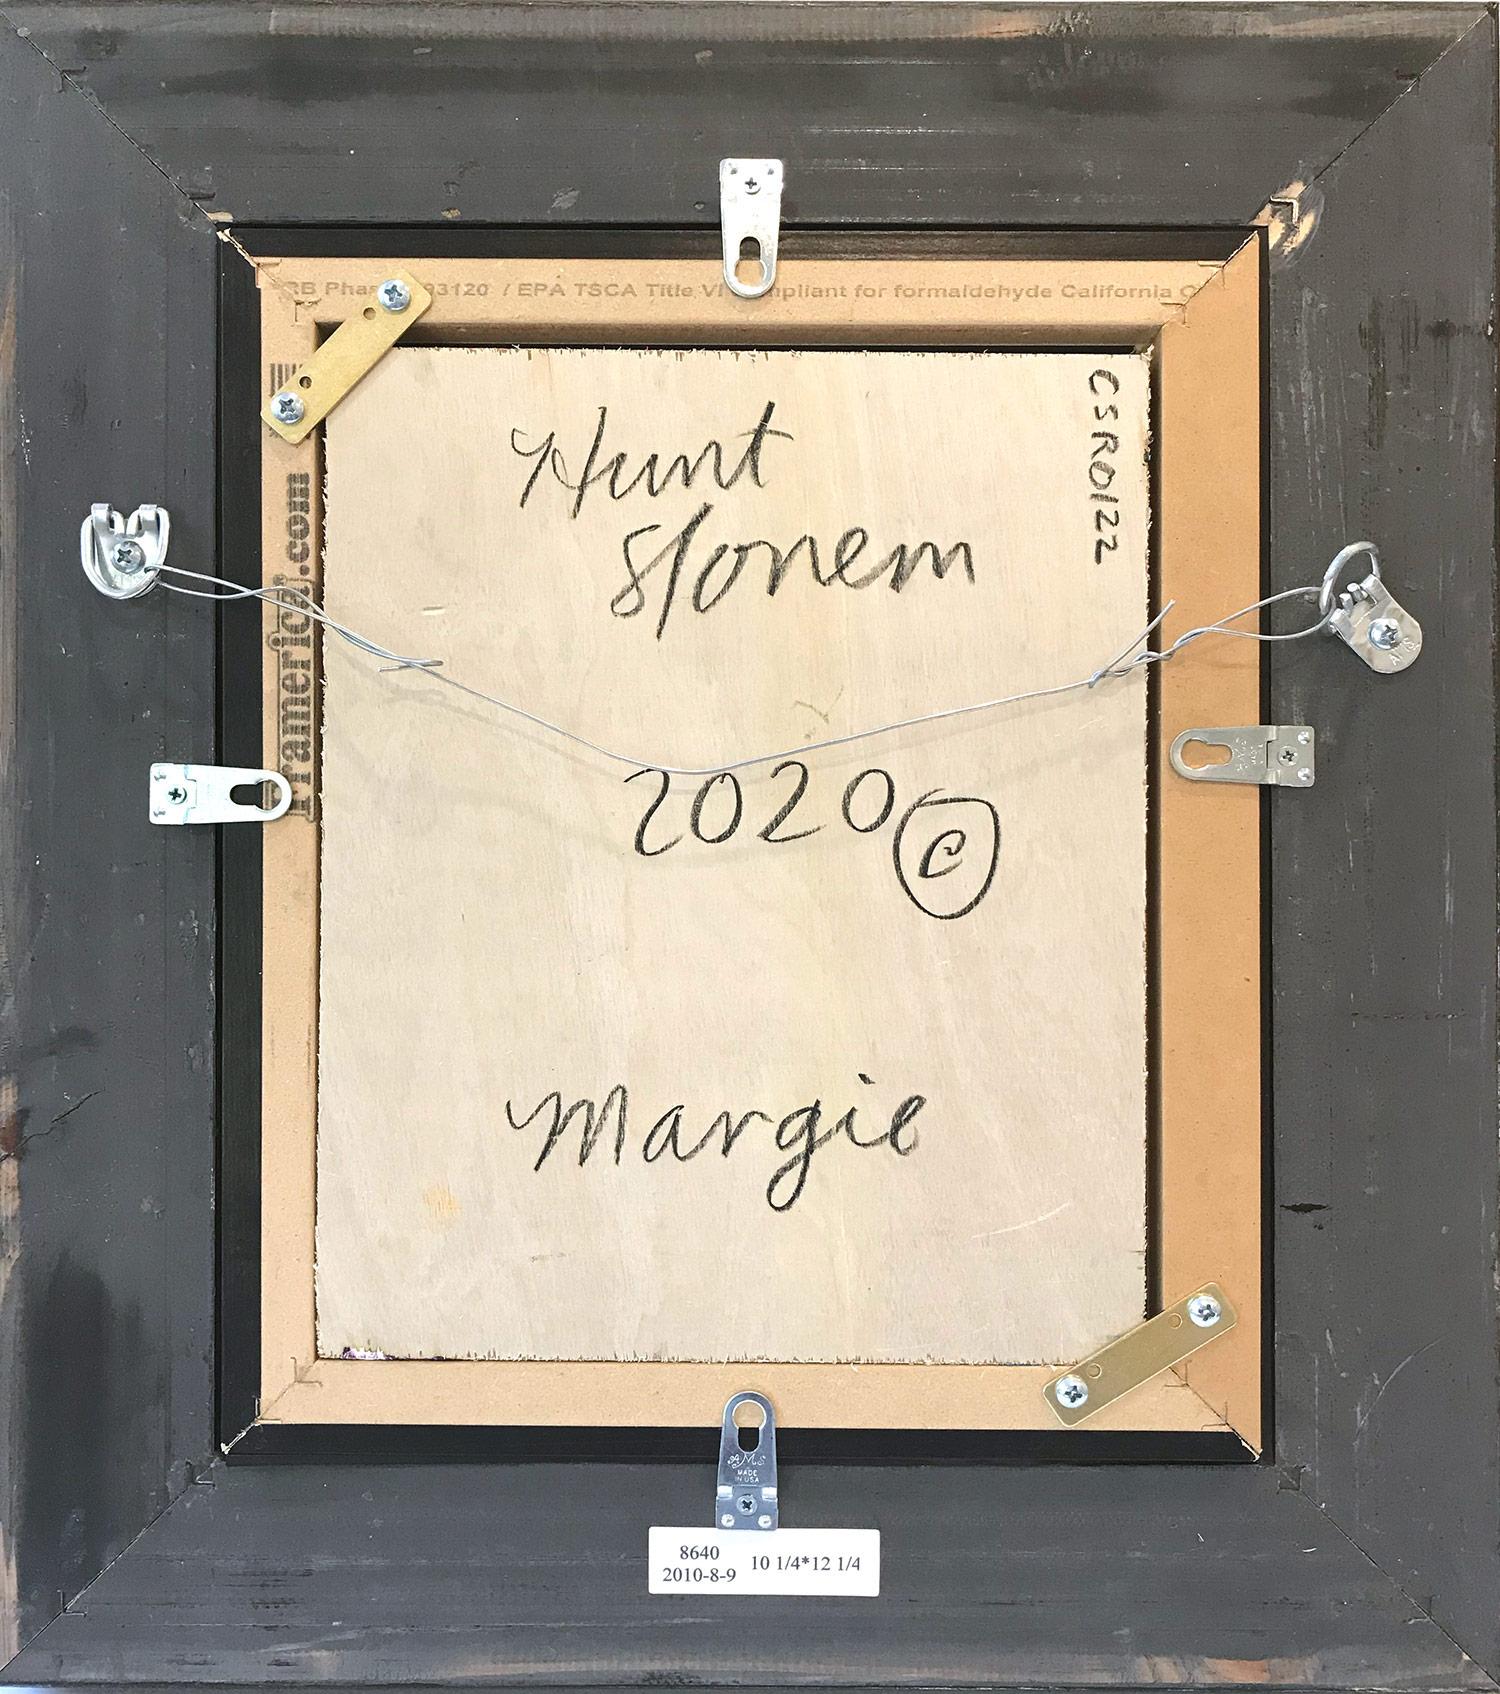 RB Phas 93120 / EPA TSCA Title VI mpliant for formaldehyde California C
CSR0122
Hunt
Slonem
Framerica.com
2020 ©
Margie
AMS
MADE
IN USA
8640 10 1/4*12 1/4
2010-8-9